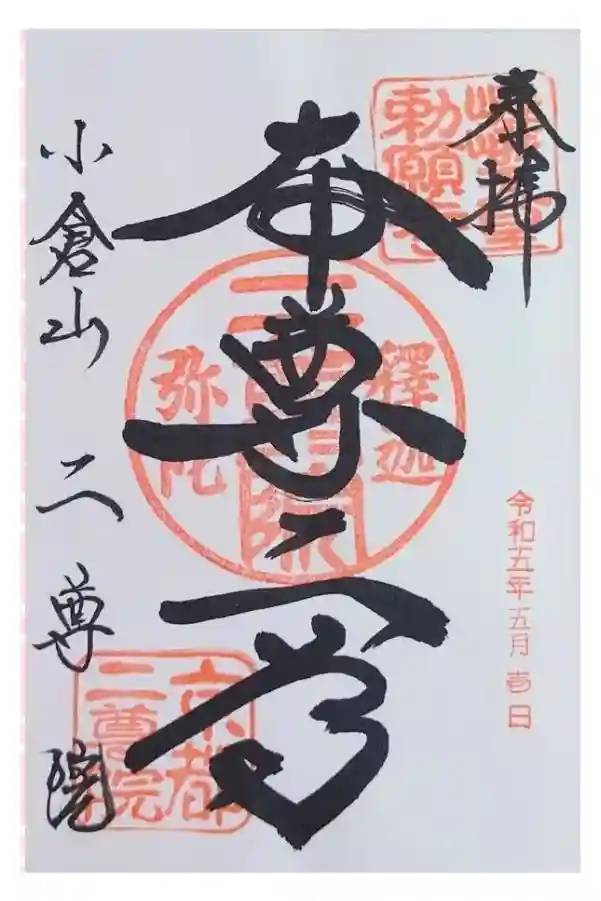 奉拝
勅願
令和五年五月壱日
本尊二尊
釋迦
二尊院
弥陀
小倉山 二尊院
京都
二尊院